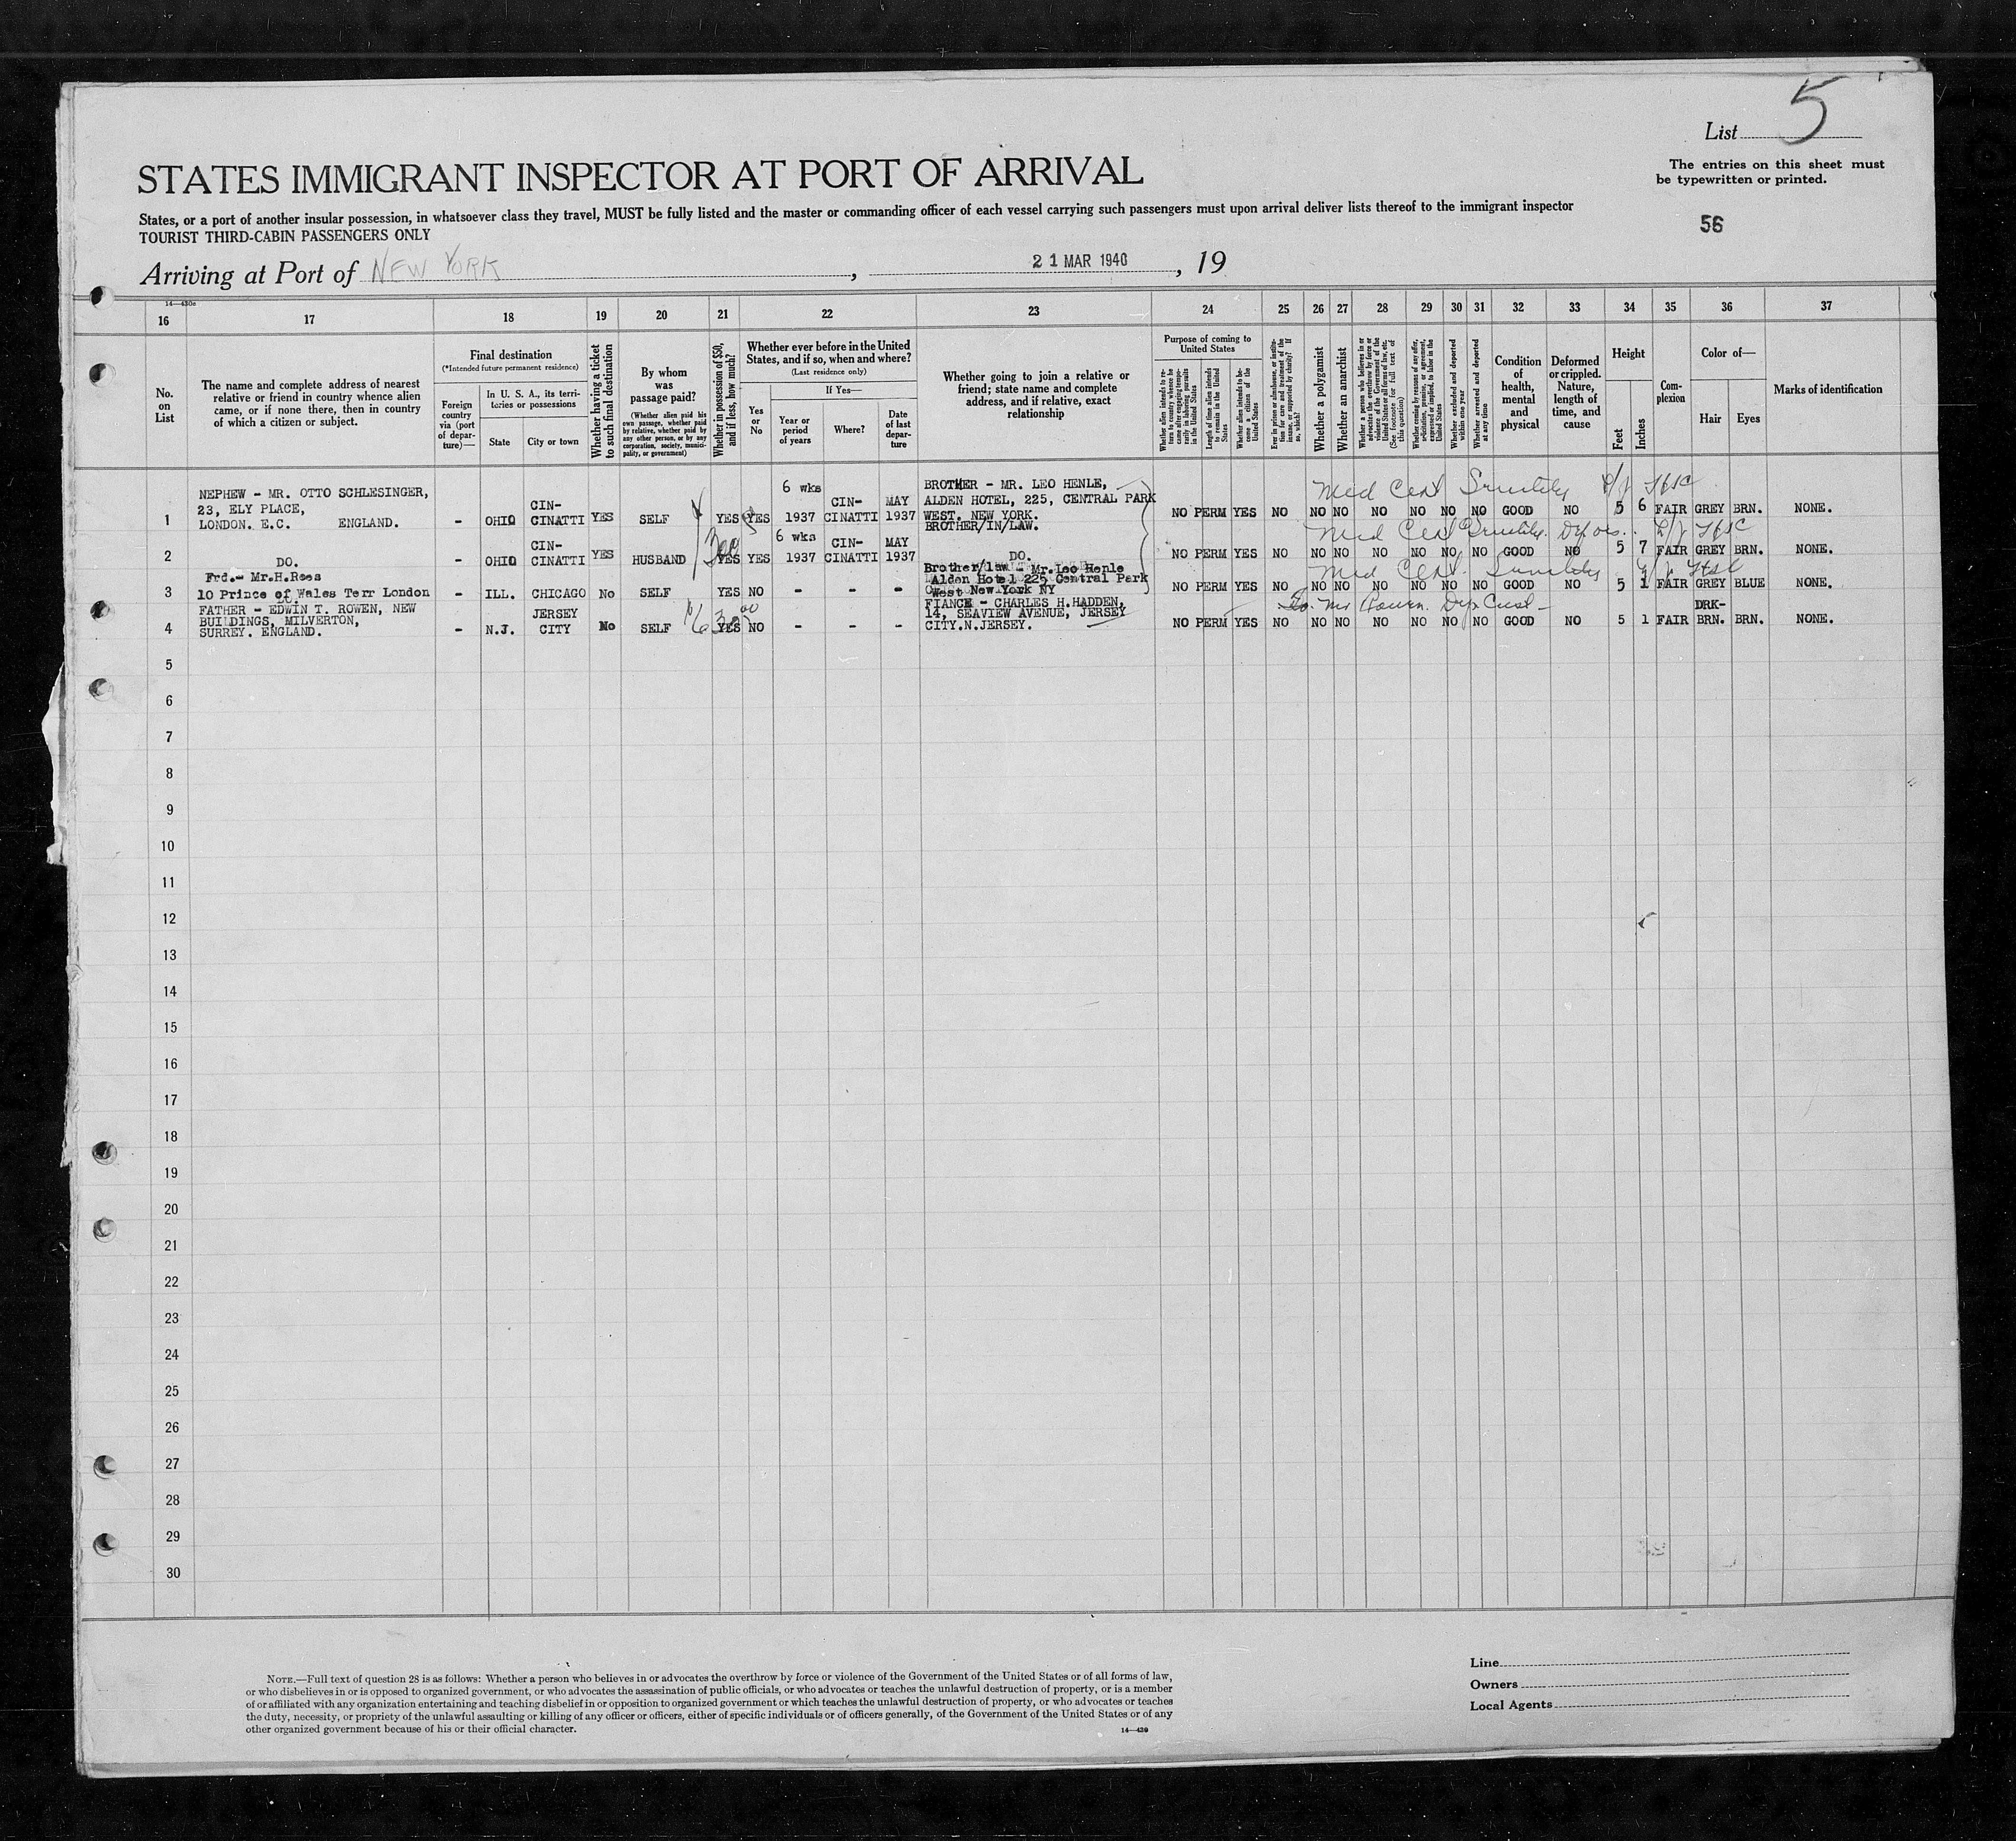 List 5
STATES IMMIGRANT INSPECTOR AT PORT OF ARRIVAL
The entries on this sheet must
be typewritten or printed.
States, or a port of another insular possession, in whatsoever class they travel, MUST be fully listed and the master or commanding officer of each vessel carrying such passengers must upon arrival deliver lists thereof to the immigrant inspector
TOURIST THIRD-CABIN PASSENGERS ONLY
56
Arriving at Port of NEW YORK, 21 MAR 1940, 19
14—430c
16 17 18 19 20 21 22 23 24 25 26 27 28 29 30 31 32 33 34 35 36 37
No. on List
The name and complete address of nearest
relative or friend in country whence alien
came, or if none there, then in country
of which a citizen or subject.
Final destination
(*Intended future permanent residence)
Foreign country via (port of departure)—
In U. S. A., its territories or possessions
State
City or town
Whether having a ticket to such final destination
By whom was passage paid?
(Whether alien paid his own passage, whether paid by relative, whether paid by any other person, or by any corporation, society, municipality, or government)
Whether in possession of $50, and if less, how much?
Whether ever before in the United States, and if so, when and where?
(Last residence only)
Yes or No
If Yes—
Year or period of years
Where?
Date of last departure
Whether going to join a relative or
friend; state name and complete
address, and if relative, exact
relationship
Purpose of coming to United States
Whether alien intends to return to country whence he came after engaging temporarily in laboring pursuits in the United States
Length of time alien intends to remain in the United States
Whether alien intends to become a citizen of the United States
Ever in prison or almshouse, or institution for care and treatment of the insane, or supported by charity? If so, which?
Whether a polygamist
Whether an anarchist
Whether a person who believes in or advocates the overthrow by force or violence of the Government of the United States or all forms of law, etc. (See footnote for full text of this question)
Whether coming by reason of any offer, solicitation, promise, or agreement, expressed or implied, to labor in the United States
Whether excluded and deported within one year
Whether arrested and deported at any time
Condition of health, mental and physical
Deformed or crippled. Nature, length of time, and cause
Height
Feet
Inches
Complexion
Color of—
Hair
Eyes
Marks of identification
1 NEPHEW - MR. OTTO SCHLESINGER,
23, ELY PLACE,
LONDON. E.C. ENGLAND.
- OHIO CIN-
CINATTI YES SELF YES YES 6 wks
1937 CIN-
CINATTI MAY
1937
BROTHER - MR. LEO HENLE,
ALDEN HOTEL, 225, CENTRAL PARK
WEST. NEW YORK.
BROTHER/IN/LAW.
Med Cert Senility
NO PERM YES NO NO NO NO NO NO NO GOOD NO 5 6 FAIR GREY BRN. NONE.
2 DO. - OHIO CIN-
CINATTI YES HUSBAND 300 YES YES 6 wks
1937 CIN-
CINATTI MAY
1937 DO.
Med Cert Senility.
NO PERM YES NO NO NO NO NO NO NO GOOD NO 5 7 FAIR GREY BRN. NONE.
3 Frd.- Mr.H.Rees
10 Prince of Wales Terr London
- ILL. CHICAGO No SELF YES NO - - -
Brother/law - Mr. Leo Henle
Alden Hotel 225 Central Park
West New York NY
Med Cert. Senility
NO PERM YES NO NO NO NO NO NO NO GOOD NO 5 1 FAIR GREY BLUE NONE.
4 FATHER - EDWIN T. ROWEN, NEW
BUILDINGS, MILVERTON,
SURREY. ENGLAND.
- N.J. JERSEY
CITY No SELF YES NO - - -
FIANCE - CHARLES H.HADDEN,
14, SEAVIEW AVENUE, JERSEY
CITY.N.JERSEY.
NO PERM YES NO NO NO NO NO NO NO GOOD NO 5 1 FAIR DRK-
BRN. BRN. NONE.
5
6
7
8
9
10
11
12
13
14
15
16
17
18
19
20
21
22
23
24
25
26
27
28
29
30
NOTE.—Full text of question 28 is as follows: Whether a person who believes in or advocates the overthrow by force or violence of the Government of the United States or of all forms of law,
or who disbelieves in or is opposed to organized government, or who advocates the assassination of public officials, or who advocates or teaches the unlawful destruction of property, or is a member
of or affiliated with any organization entertaining and teaching disbelief in or opposition to organized government or which teaches the unlawful destruction of property, or who advocates or teaches
the duty, necessity, or propriety of the unlawful assaulting or killing of any officer or officers, either of specific individuals or of officers generally, of the Government of the United States or of any
other organized government because of his or their official character.
14—430
Line
Owners
Local Agents